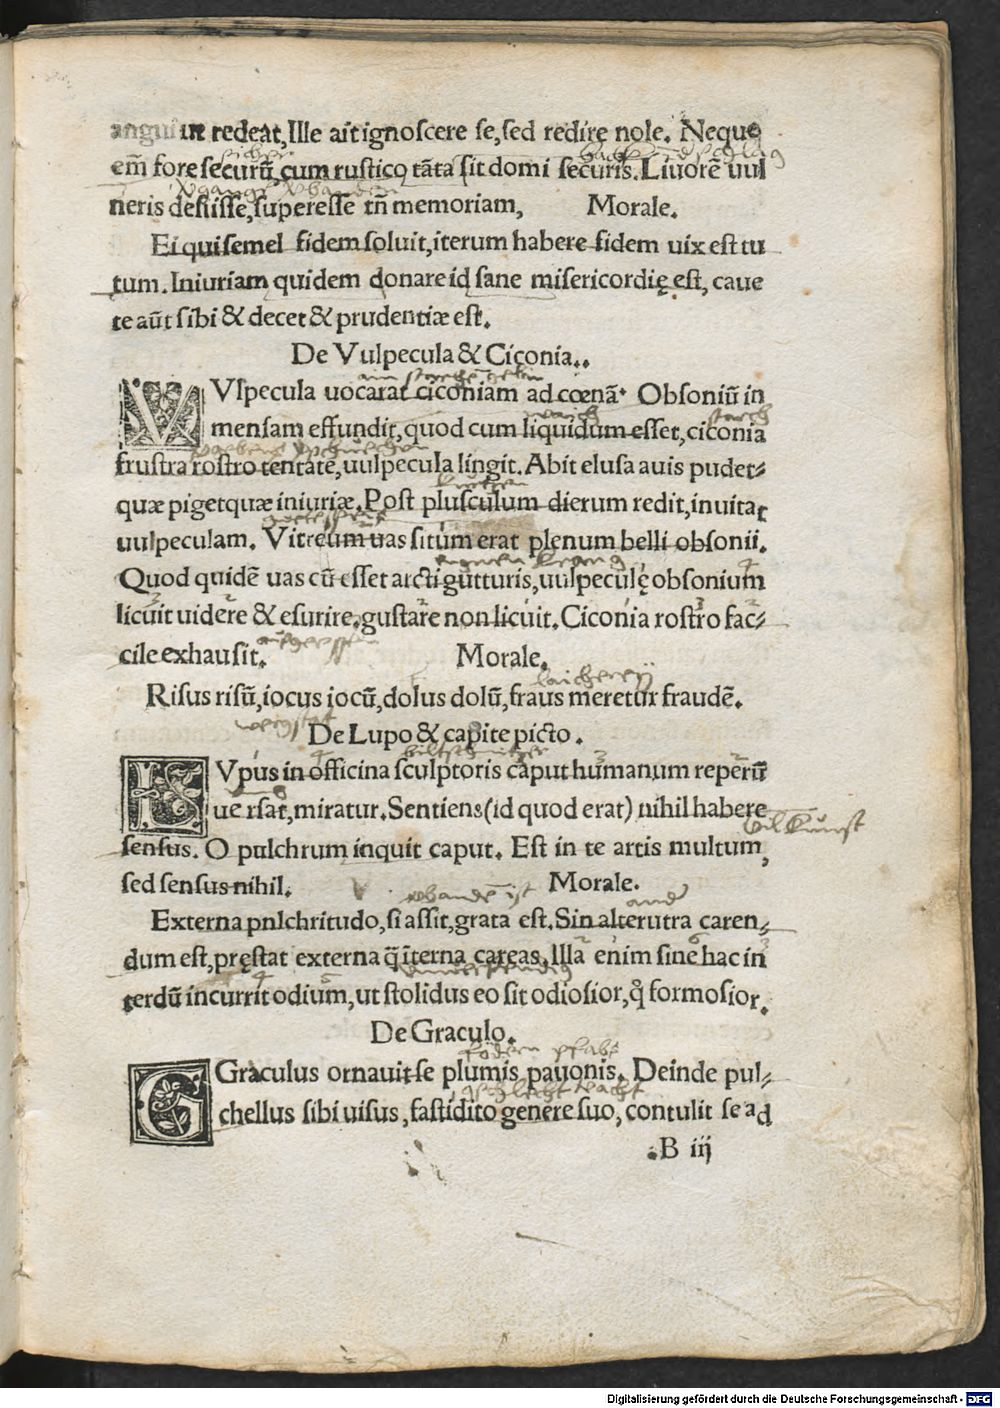 anguis in redeat, Ille ait ignoscere se, sed redire nole. Neque
em̃ fore securũ, cum rustico tãta sit domi securis. Liuorẽ uul
neris defluisse, superesse tñ memoriam, Morale.
Ei qui semel fidem soluit, iterum habere fidem uix est tu
tum. Iniuriam quidem donare id sane misericordię est, caue
te aũt sibi & decet & prudentiæ est.
De Vulpecula & Ciconia..
VVlpecula uocarat ciconiam ad cœnã. Obsoniũ in
mensam effundit, quod cum liquidum esset, ciconia
frustra rostro tentãte, uulpecula lingit. Abit elusa auis pudet⸗
quæ pigetquæ iniuriæ. Post plusculum dierum redit, inuitat
uulpeculam. Vitreum uas situm erat plenum belli obsonii.
Quod quidẽ uas cũ esset arcti gutturis, uulpeculę obsonium
licuit uidere & esurire, gustare non licuit. Ciconia rostro fac⸗
cile exhausit. Morale.
Risus risũ, iocus iocũ, dolus dolũ, fraus meretur fraudẽ.
De Lupo & capite picto.
LVpus in officina sculptoris caput humanum reperũ
uersat, miratur. Sentiens (id quod erat) nihil habere
sensus. O pulchrum inquit caput. Est in te artis multum,
sed sensus nihil. Morale.
Externa pnlchritudo, si assit, grata est. Sin alterutra caren⸗
dum est, pręstat externa q̃ ĩterna careas. Illa enim sine hac in
terdũ incurrit odium, ut stolidus eo sit odiosior, q̊ formosior.
De Graculo.
GGraculus ornauit se plumis pauonis. Deinde pul⸗
chellus sibi uisus, fastidito genere suo, contulit se ad
B iij
Digitalisierung gefördert durch die Deutsche Forschungsgemeinschaft - DFG